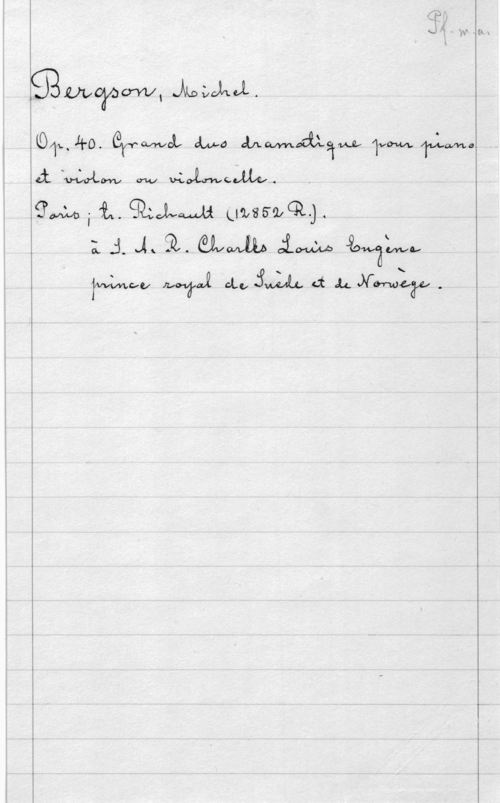 Pf. m. a.
Bergson, Michel.
Op. 40. Grand duo dramatique pour piano
et violon ou violoncelle.
Paris; tr. Richault (12852 R.).
à S. A. R. Charles Louis Eugène
prince royal de Suède et de Norwège.